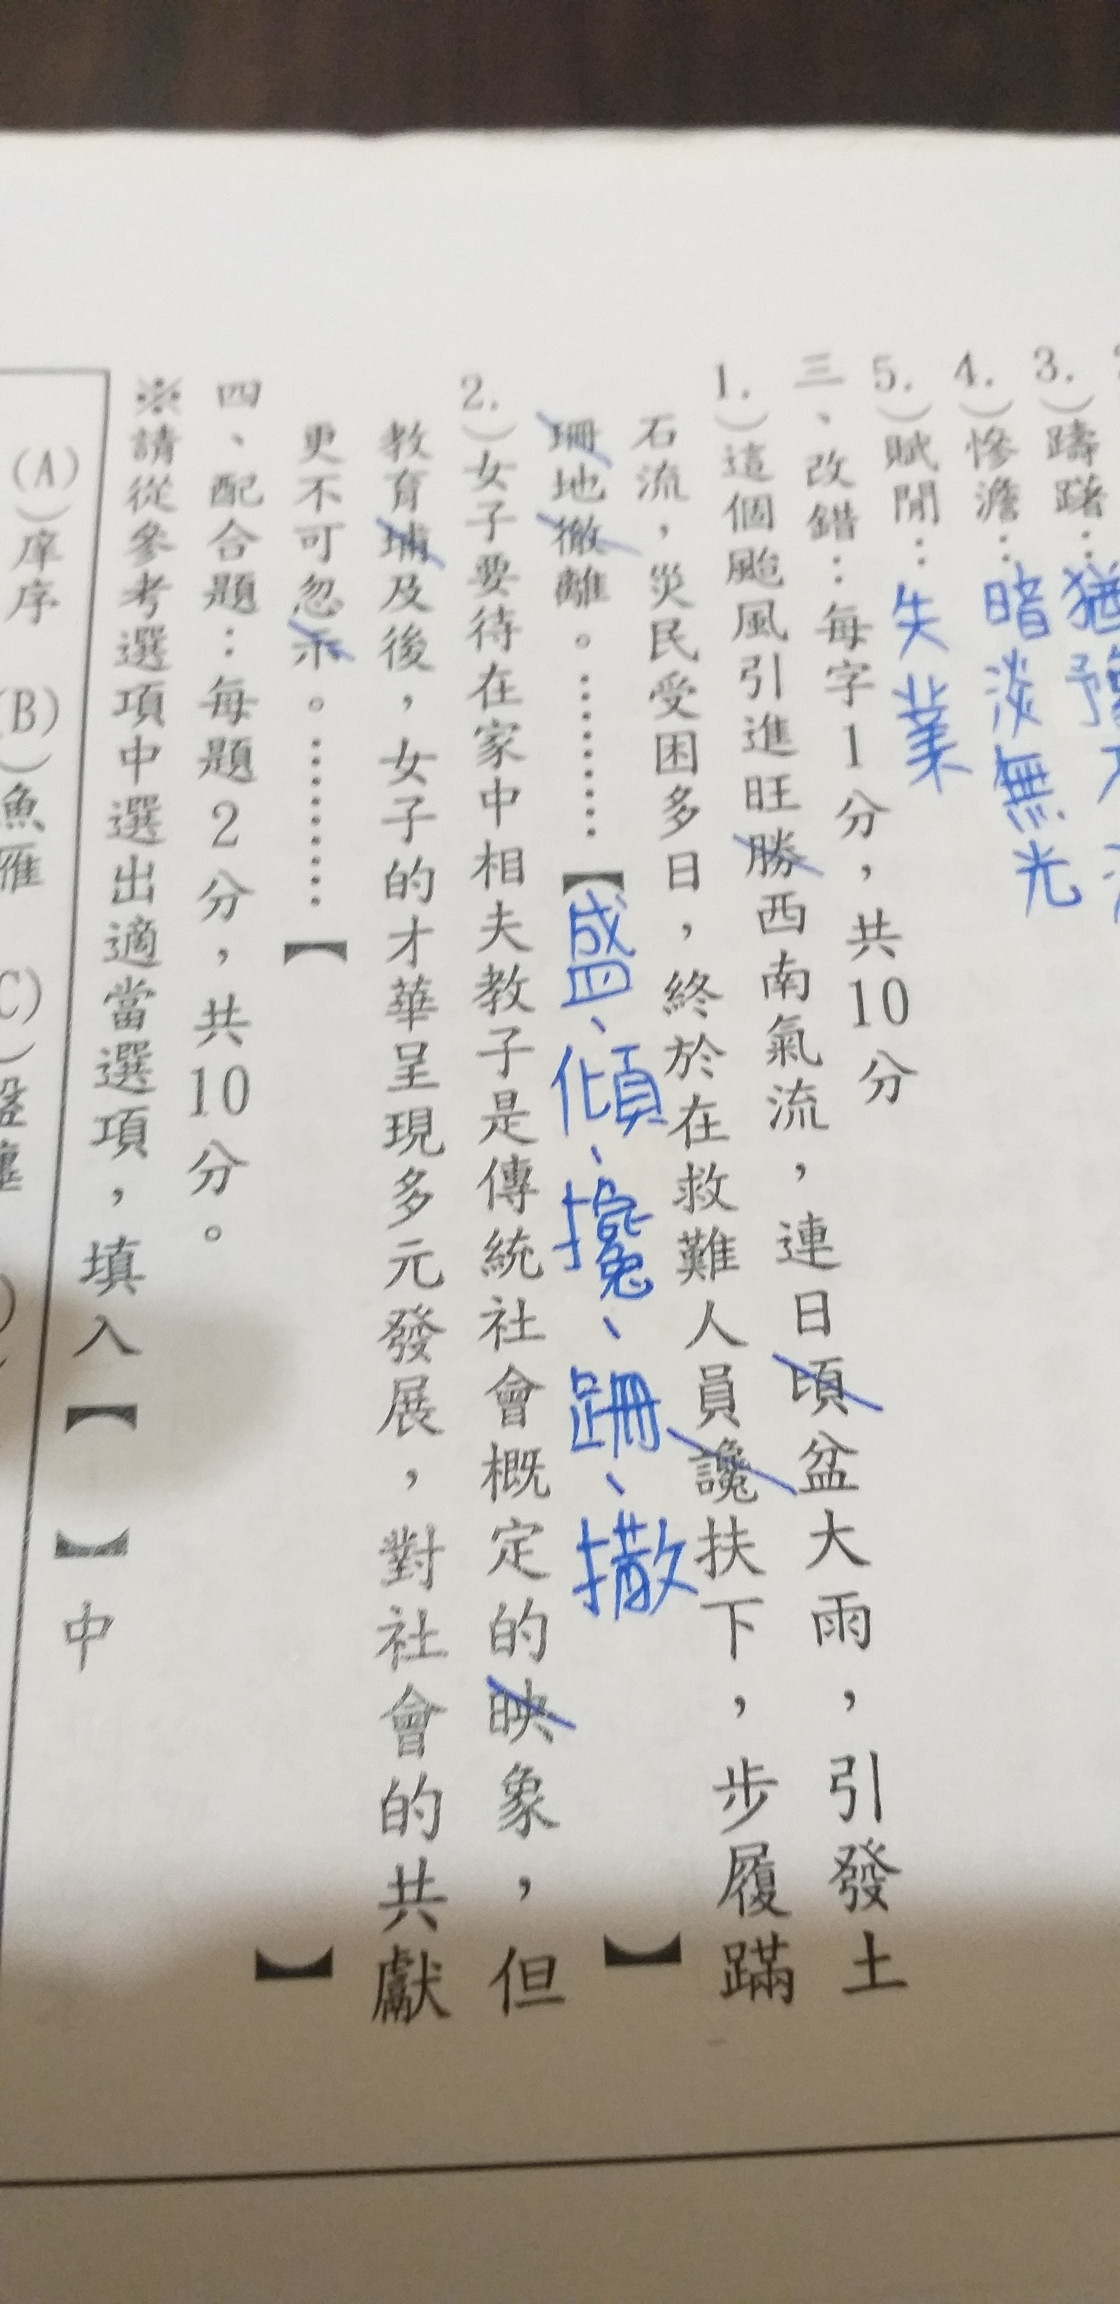 3.）躊躇：猶豫不
4.）慘澹：暗淡無光
5.）賦閒：失業
三、改錯：每字1分，共10分
1.）這個颱風引進旺勝西南氣流，連日頃盆大雨，引發土
石流，災民受困多日，終於在救難人員讒扶下，步履蹣
珊地徹離。…………【盛、傾、攙、跚、撤】
2.）女子要待在家中相夫教子是傳統社會概定的映象，但
教育埔及後，女子的才華呈現多元發展，對社會的共獻
更不可忽示。…………【 】
四、配合題：每題2分，共10分。
※請從參考選項中選出適當選項，填入【 】中
(A)庠序 (B)魚雁 (C)